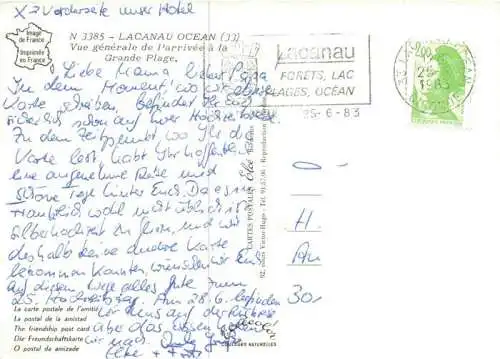 X = Vorderseite unser Hotel
Image de France
Imprimée en France
N 3385 - LACANAU OCEAN (33)
Vue générale de l'arrivée à la
Grande Plage.
Lacanau
FORÊTS, LAC
PLAGES, OCÉAN
25-6-83
2,00
1983
Liebe Mama, lieber Papa
In dem Moment, wo ich diese
Karte schreibe, befindet Ihr
Euch schon auf Hochzeitsreise.
Zu dem Zeitpunkt wo Ihr die
Karte lest habt Ihr hoffentlich
eine angenehme Reise und
schöne Tage hinter Euch. Da es in
Frankreich wohl nicht üblich ist
Silberhochzeit zu feiern, und wir
deshalb keine andere Karte
bekommen konnten, wünschen wir Euch
auf diesem Wege alles Gute zum
25. Hochzeitstag. Am 28.6. befinden
wir uns auf der Rückreise
Aber das wissen
wir noch.
CARTES POSTALES
92, cours Victor-Hugo - Tél. 91.57.06 - Reproduction
O
H
An
30,-
La carte postale de l'amitié
La postal de la amistad
The friendship post card
Die Freundschaftskarte
O postal da amizade
COULEURS NATURELLES